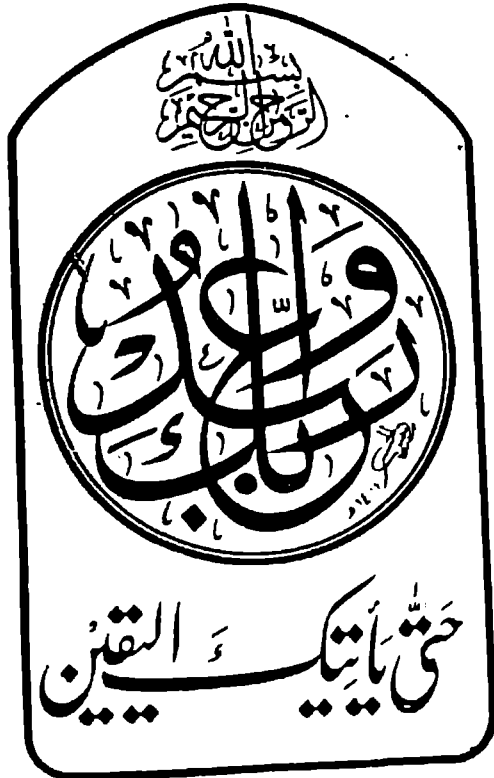 بسم الله
الرحمن الرحيم
واعبد ربك
حَتّٰى يَأْتِيَكَ اليَقِيْن